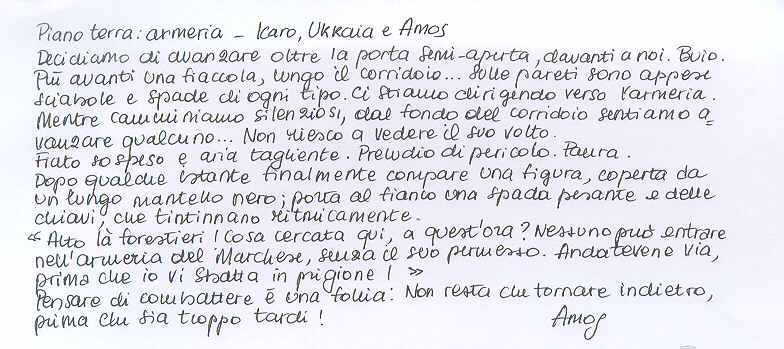 Piano terra: armeria - Icaro, Ukraia e Amos
Decidiamo di avanzare oltre la porta semi-aperta, davanti a noi. Buio.
Più avanti una fiaccola, lungo il corridoio... sulle pareti sono appese
sciabole e spade di ogni tipo. Ci stiamo dirigendo verso l'armeria.
Mentre camminiamo silenziosi, dal fondo del corridoio sentiamo a=
vanzare qualcuno... Non riesco a vedere il suo volto.
Fiato sospeso e aria tagliente. Preludio di pericolo. Paura.
Dopo qualche istante finalmente compare una figura, coperta da
un lungo mantello nero; porta al fianco una spada pesante e delle
chiavi, che tintinnano ritmicamente.
"Alto là forestieri! Cosa cercate qui, a quest'ora? Nessuno può entrare
nell'armeria del Marchese, senza il suo permesso. Andatevene via,
prima che io vi sbatta in prigione! »
Pensare di combattere è una follia: Non resta che tornare indietro,
prima che sia troppo tardi!
Amos